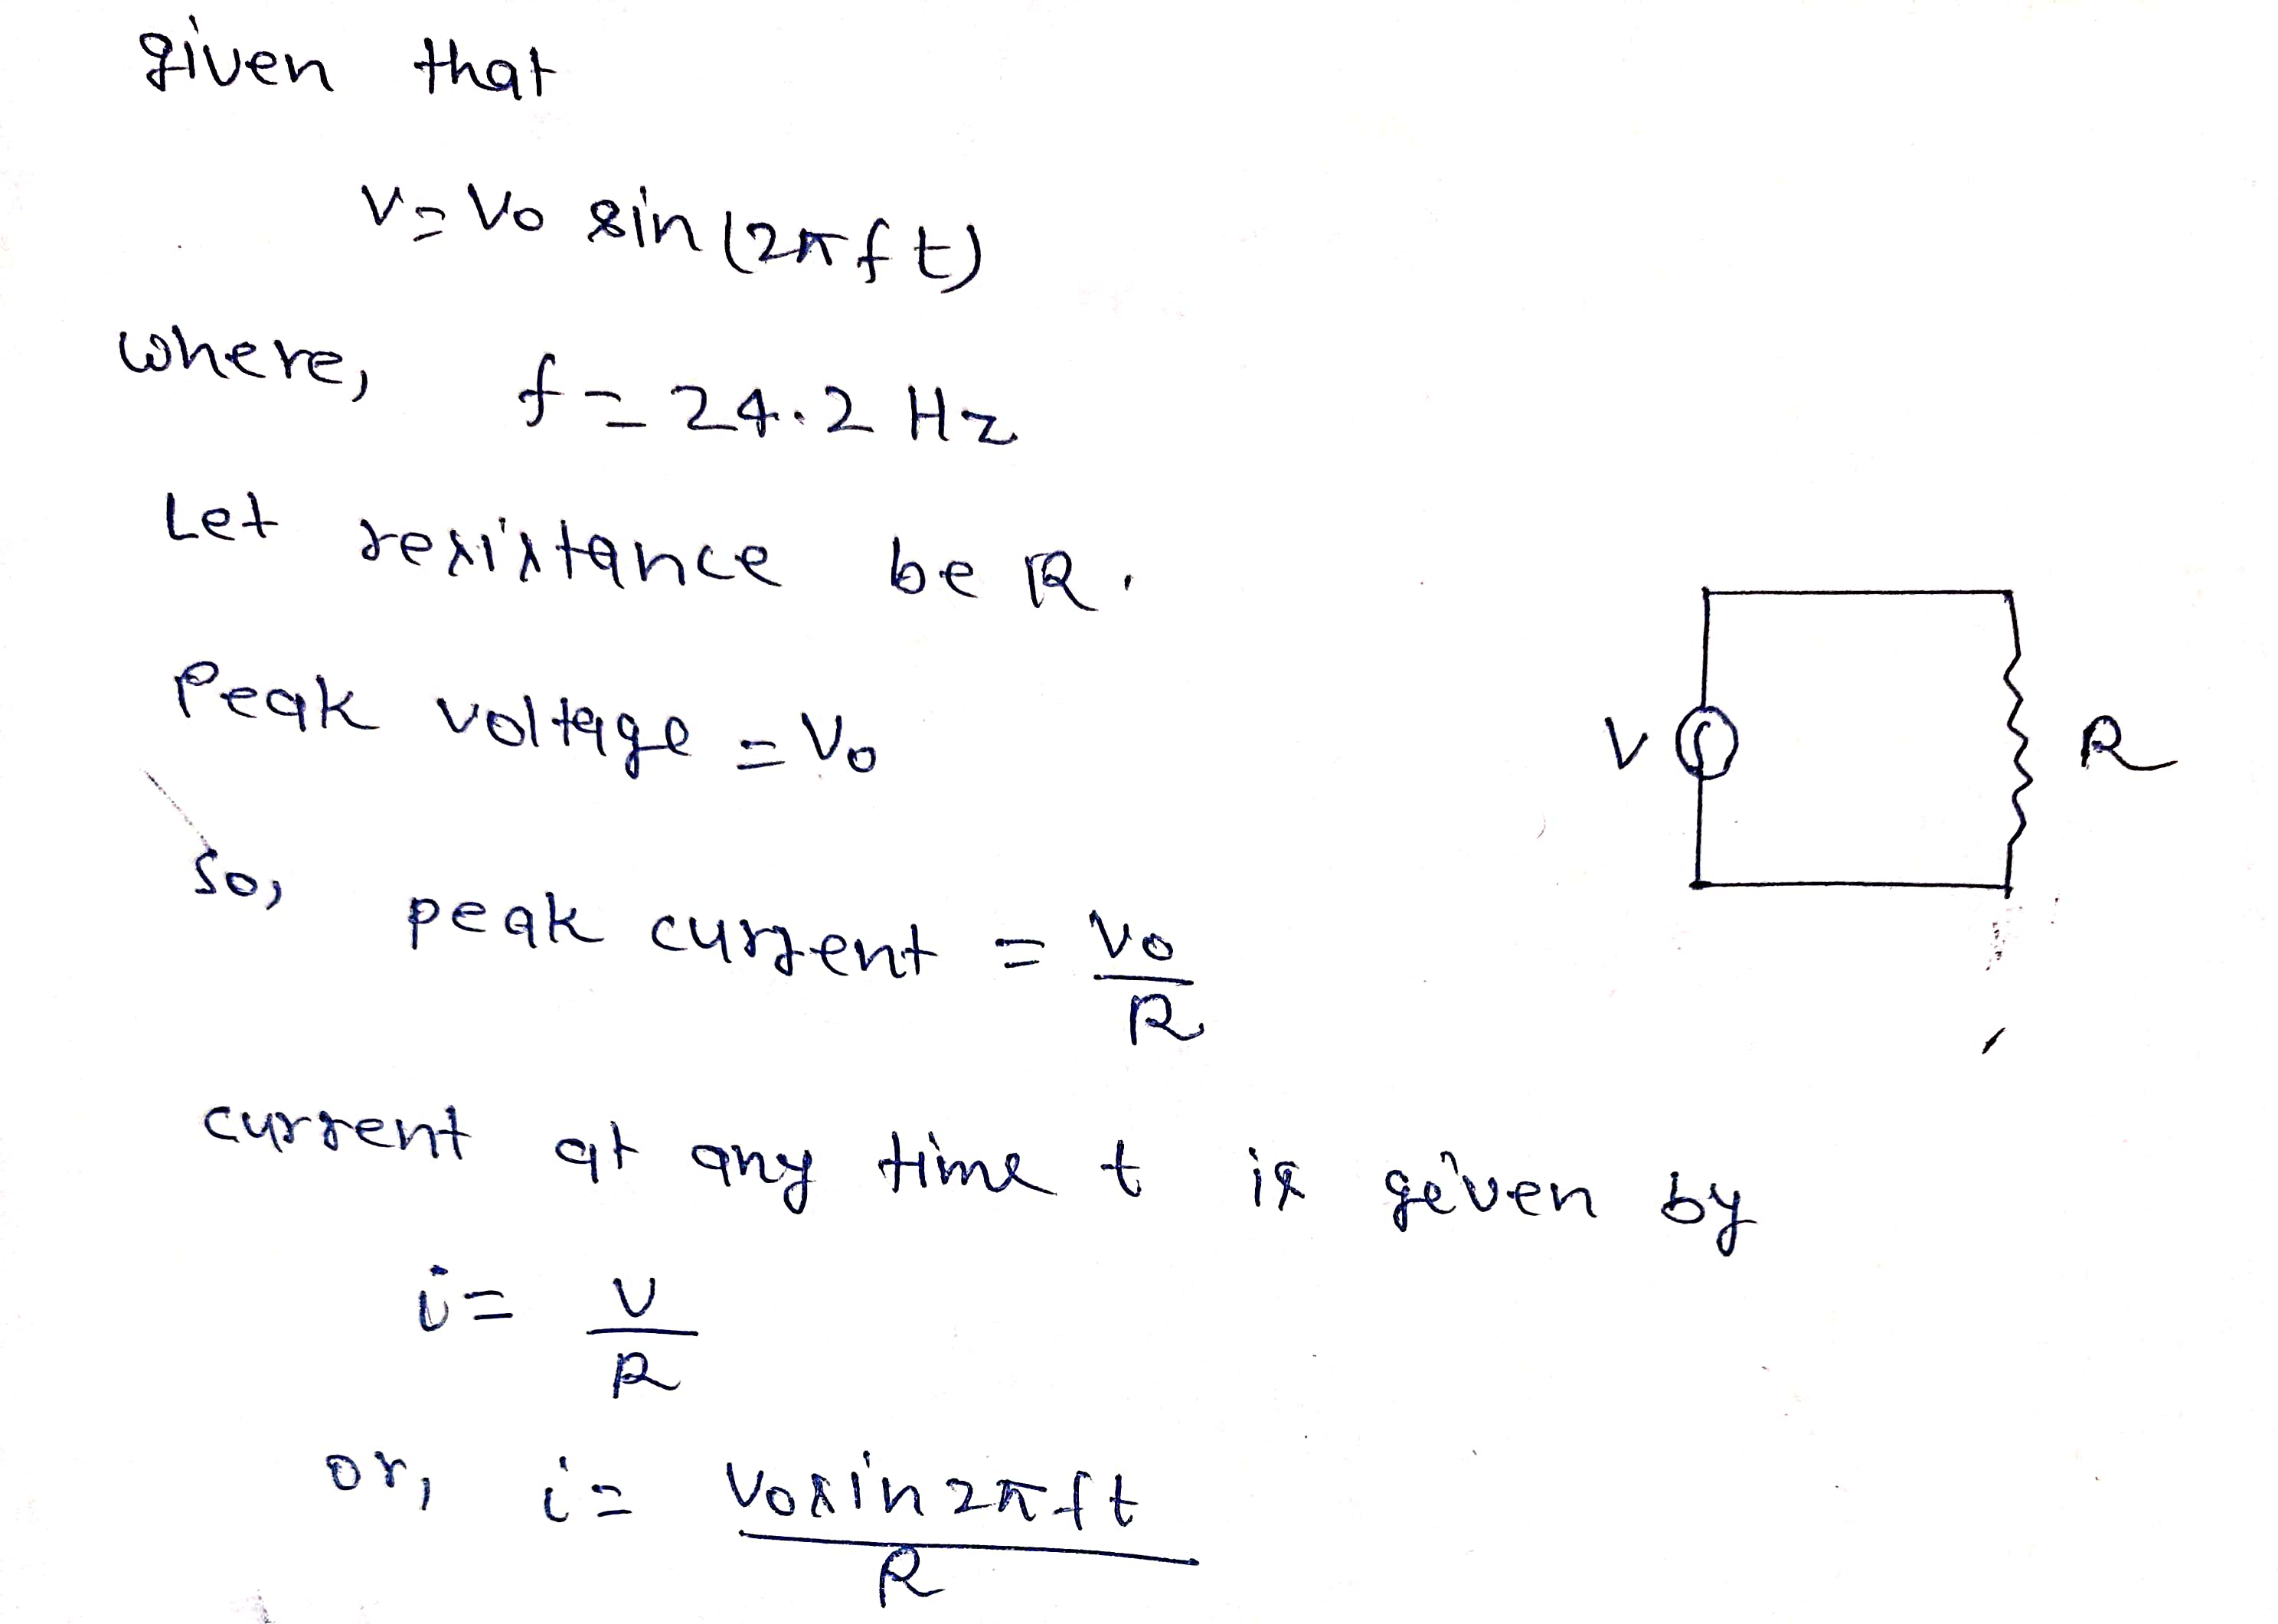 given that
V = Vo sin (2πft)
where, f = 24.2 Hz
Let resistance be R.
Peak voltage = Vo
V R
So, peak current = Vo/R
current at any time t is given by
i = V/R
or, i = Vo sin 2πft/R